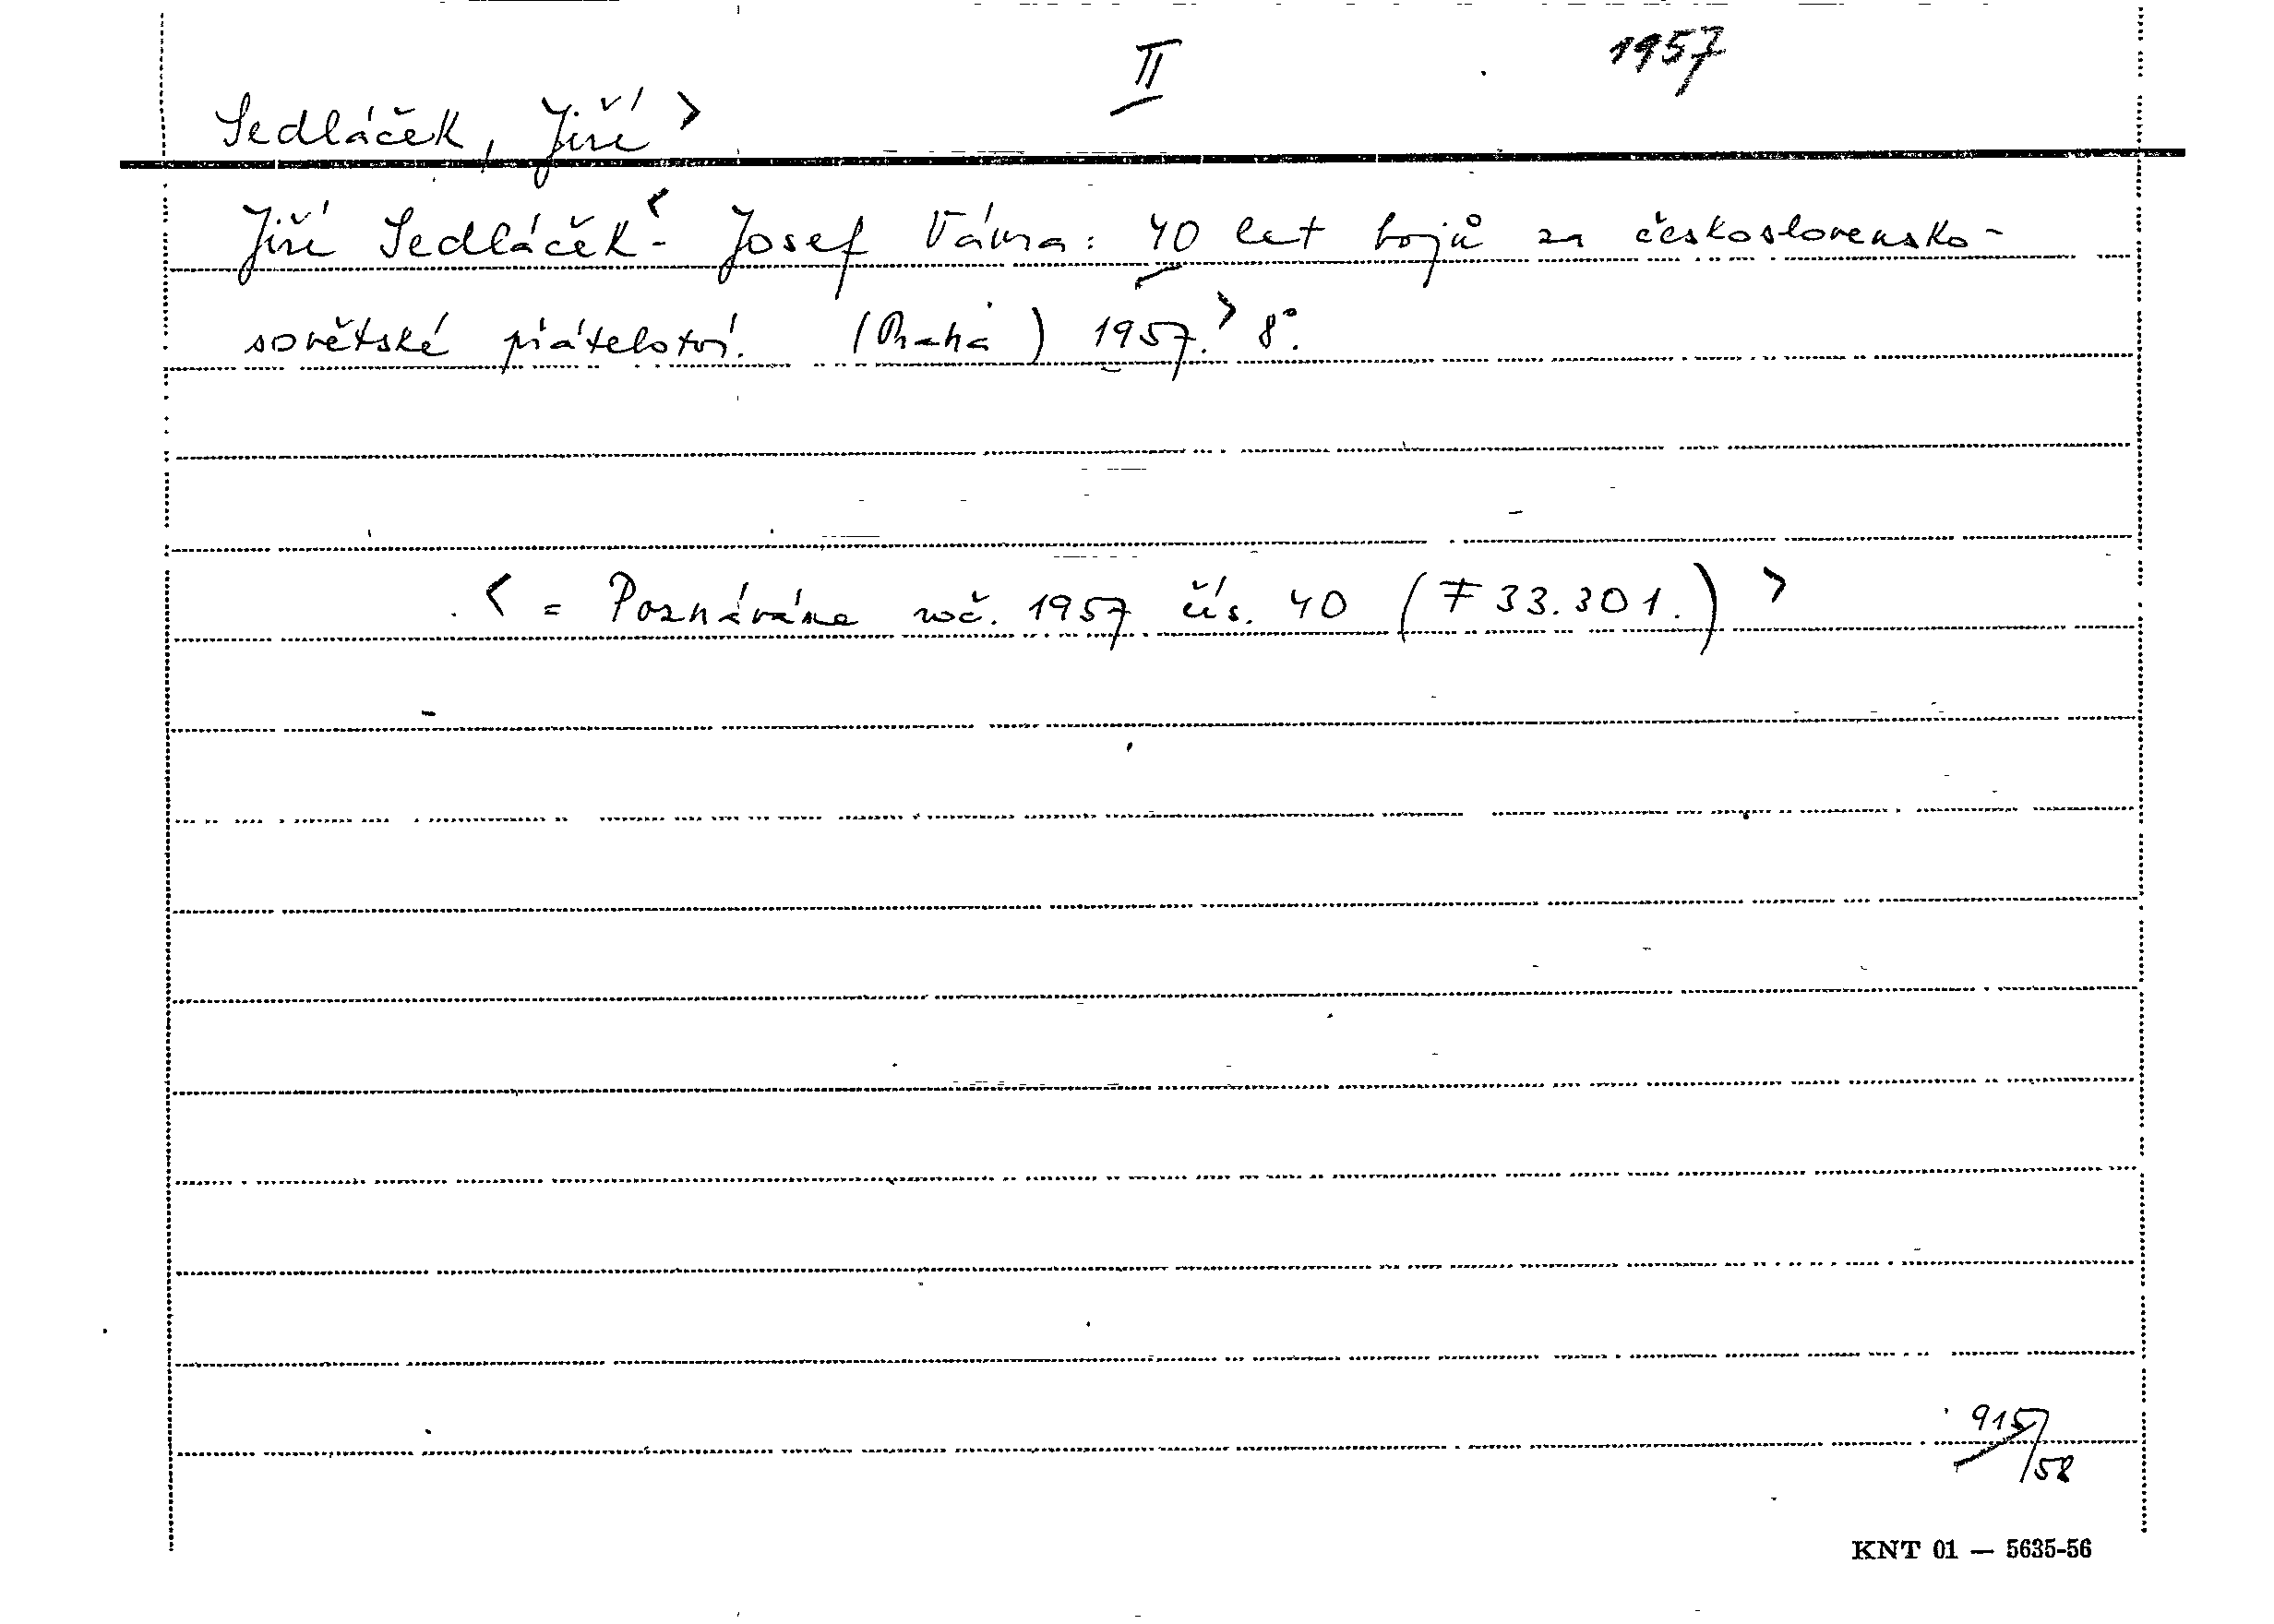 II 1957
Sedláček, Jiří >
Jiří Sedláček < - Josef Vávra: 40 let bojů za československo-
sovětské přátelství. (Praha) 1957. > 8°.
< = Poznáváme roč. 1957 čís. 40 (F 33.301.) >
915/58
KNT 01 — 5635-56